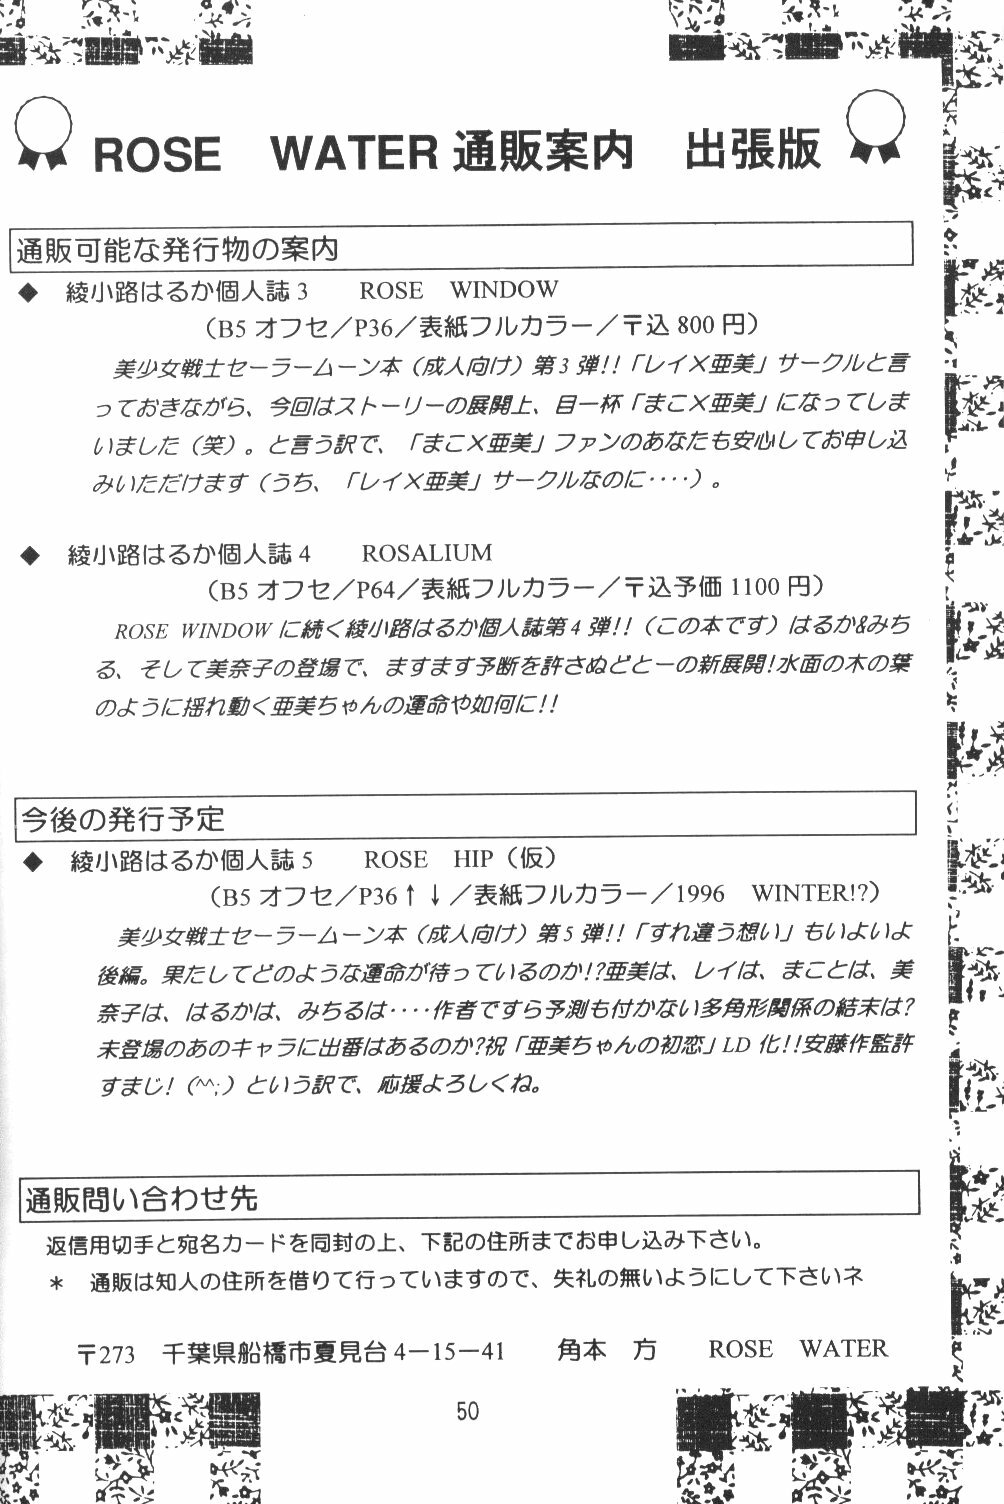 ROSE　WATER 通販案内　出張版
通販可能な発行物の案内
◆　綾小路はるか個人誌 3　　ROSE　WINDOW
（B5 オフセ／P36／表紙フルカラー／〒込 800 円）
美少女戦士セーラームーン本（成人向け）第 3 弾!!「レイ×亜美」サークルと言
っておきながら、今回はストーリーの展開上、目一杯「まこ×亜美」になってしま
いました（笑）。と言う訳で、「まこ×亜美」ファンのあなたも安心してお申し込
みいただけます（うち、「レイ×亜美」サークルなのに‥‥）。
◆　綾小路はるか個人誌 4　　ROSALIUM
（B5 オフセ／P64／表紙フルカラー／〒込予価 1100 円）
ROSE WINDOW に続く綾小路はるか個人誌第 4 弾!!（この本です）はるか&みち
る、そして美奈子の登場で、ますます予断を許さぬどとーの新展開!水面の木の葉
のように揺れ動く亜美ちゃんの運命や如何に!!
今後の発行予定
◆　綾小路はるか個人誌 5　　ROSE　HIP（仮）
（B5 オフセ／P36↑↓／表紙フルカラー／1996　WINTER!?）
美少女戦士セーラームーン本（成人向け）第 5 弾!!「すれ違う想い」もいよいよ
後編。果たしてどのような運命が待っているのか!?亜美は、レイは、まことは、美
奈子は、はるかは、みちるは‥‥作者ですら予測も付かない多角形関係の結末は?
未登場のあのキャラに出番はあるのか?祝「亜美ちゃんの初恋」LD 化!!安藤作監許
すまじ!（^^;）という訳で、応援よろしくね。
通販問い合わせ先
返信用切手と宛名カードを同封の上、下記の住所までお申し込み下さい。
＊　通販は知人の住所を借りて行っていますので、失礼の無いようにして下さいネ
〒273　千葉県船橋市夏見台 4－15－41　　角本　方　　ROSE　WATER
50